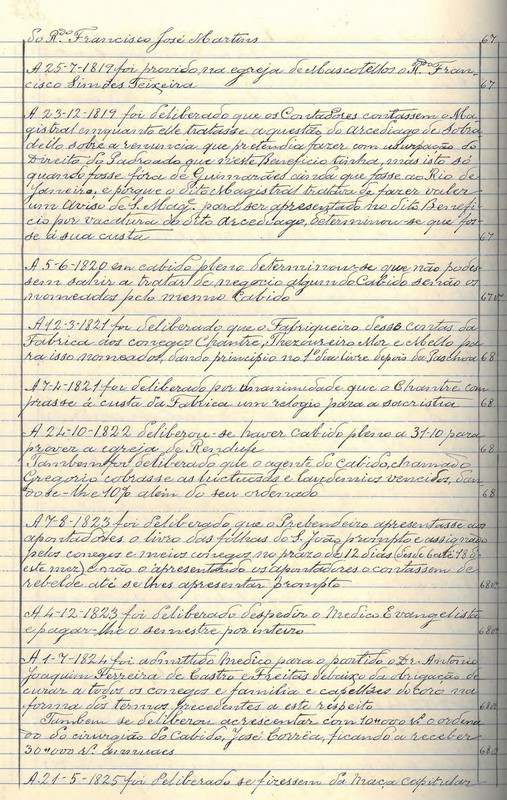 do R.do Francisco José Martins 67
A 25-7-1819 foi provido na egreja de Mascotellos o R.do Fran-
cisco Simões Teixeira 67
A 23-12-1819 foi deliberado que os Contadores contassem o Ma-
gistral emquanto elle tratasse a questão do arcediago de Sobra-
dello sobre a renuncia que pretendia fazer com usurpação do
Direito do Padroado que n'este Beneficio tinha, mas isto só
quando fosse fóra de Guimarães ainda que fosse ao Rio de
Janeiro, e porque o dito Magistral tratava de fazer valer
um Aviso de S. Mag.e para ser apresentado no dito Benefi-
cio por vacatura do dito Arcediago, determinou-se que fos-
se á sua custa 67
A 5-6-1820 em cabido pleno determinou-se que não podes-
sem sahir a tratar de negocio algum do Cabido senão os
nomeados pelo mesmo Cabido 67v.
A 12-3-1821 foi deliberado que o Fabriqueiro desse contas da
Fabrica aos conegos Chantre, Thezoureiro Mor e Mello pa-
ra isso nomeados, dando principio no 1º dia livre depois da Paschoa 68
A 7-4-1821 foi deliberado por unanimidade que o Chantre com-
prasse á custa da Fabrica um relogio para a sacristia 68
A 24-10-1822 deliberou-se haver Cabido pleno a 31-10 para
prover a egreja de Rendufe 68
Tambem foi deliberado que o agente do Cabido, chamado
Gregorio cobrasse as luctuosas e laudemios vencidos, dan-
do-se-lhe 10% além do seu ordenado 68
A 7-8-1823 foi deliberado que o Prebendeiro apresentasse aos
apontadores o livro das filhas do S. João prompto e assignado
pelos conegos e meios conegos no prazo de 12 dias (desde 6 até 18 d'
este mez) e não o apresentando os apontadores o contassem de
rebelde até se lhes apresentar prompto 68v.
A 4-12-1823 foi deliberado despedir o Medico Evangelista
e pagar-lhe o semestre por inteiro 68v.
A 1-7-1824 foi admittido Medico para o partido o Dr. Antonio
Joaquim Ferreira de Castro e Freitas debaixo da obrigação de
curar a todos os conegos e familia e capellães do coro na
forma dos termos precedentes a este respeito 68v.
Tambem se deliberou acrescentar com 10"000 rs. o ordena-
do do cirurgião do Cabido, José Corrêa, ficando a receber
30"000 rs. annuaes 68v.
A 21-5-1825 foi deliberado se fizessem da Maça capitular